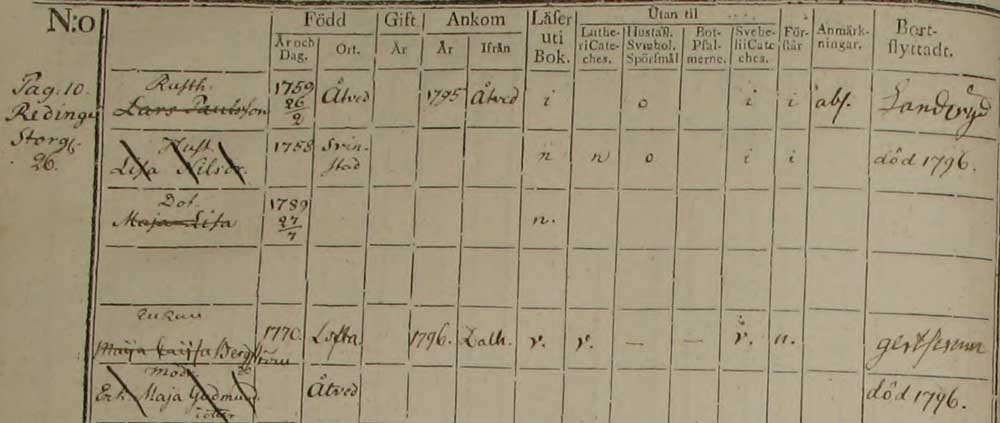 N:o Född Gift Ankom Läser uti Bok. Utan til Bort-flyttadt.
År och Dag. Ort. År År Ifrån Lutheri Cateches. Hustafl. Symbol. Spörsmål Bot-Psalmerne. Svebelii Cateches. För-står Anmärkningar.
Pag. 10.
Storg.
26.
Rusth.
Lars Paulsson 1759 26/2 Åtved 1795 Åtved i o i i abs.
Hust.
Lisa Nilsdr. 1758 Svinstad n n o i i död 1796.
Dot.
Maja Lisa 1789 27/7 n.
Enkan
Maija Caisa Bergström 1770. Lofta 1796. Dalh. v. v. — — v. n.
Mod.
Erk. Maja Gudmunds 
dotter Åtved död 1796.